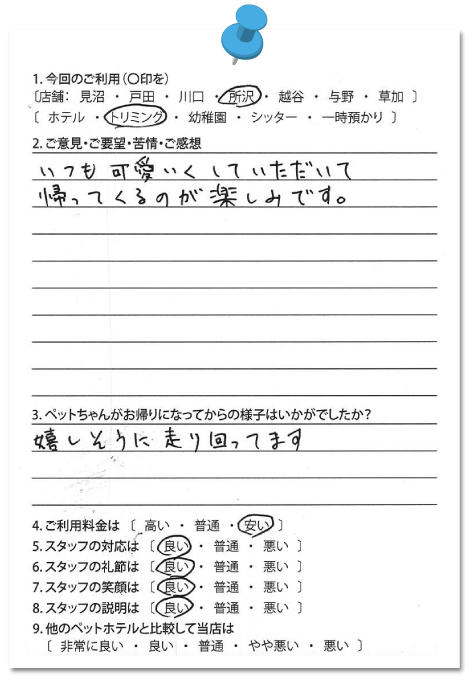 1. 今回のご利用(〇印を)
〔店舗: 見沼 ・ 戸田 ・ 川口 ・ 所沢 ・ 越谷 ・ 与野 ・ 草加 〕
〔 ホテル ・ トリミング ・ 幼稚園 ・ シッター ・ 一時預かり 〕
2. ご意見・ご要望・苦情・ご感想
いつも可愛いくしていただいて
帰ってくるのが楽しみです。
3. ペットちゃんがお帰りになってからの様子はいかがでしたか?
嬉しそうに走り回ってます
4. ご利用料金は 〔 高い ・ 普通 ・ 安い 〕
5. スタッフの対応は 〔 良い ・ 普通 ・ 悪い 〕
6. スタッフの礼節は 〔 良い ・ 普通 ・ 悪い 〕
7. スタッフの笑顔は 〔 良い ・ 普通 ・ 悪い 〕
8. スタッフの説明は 〔 良い ・ 普通 ・ 悪い 〕
9. 他のペットホテルと比較して当店は
〔 非常に良い ・ 良い ・ 普通 ・ やや悪い ・ 悪い 〕